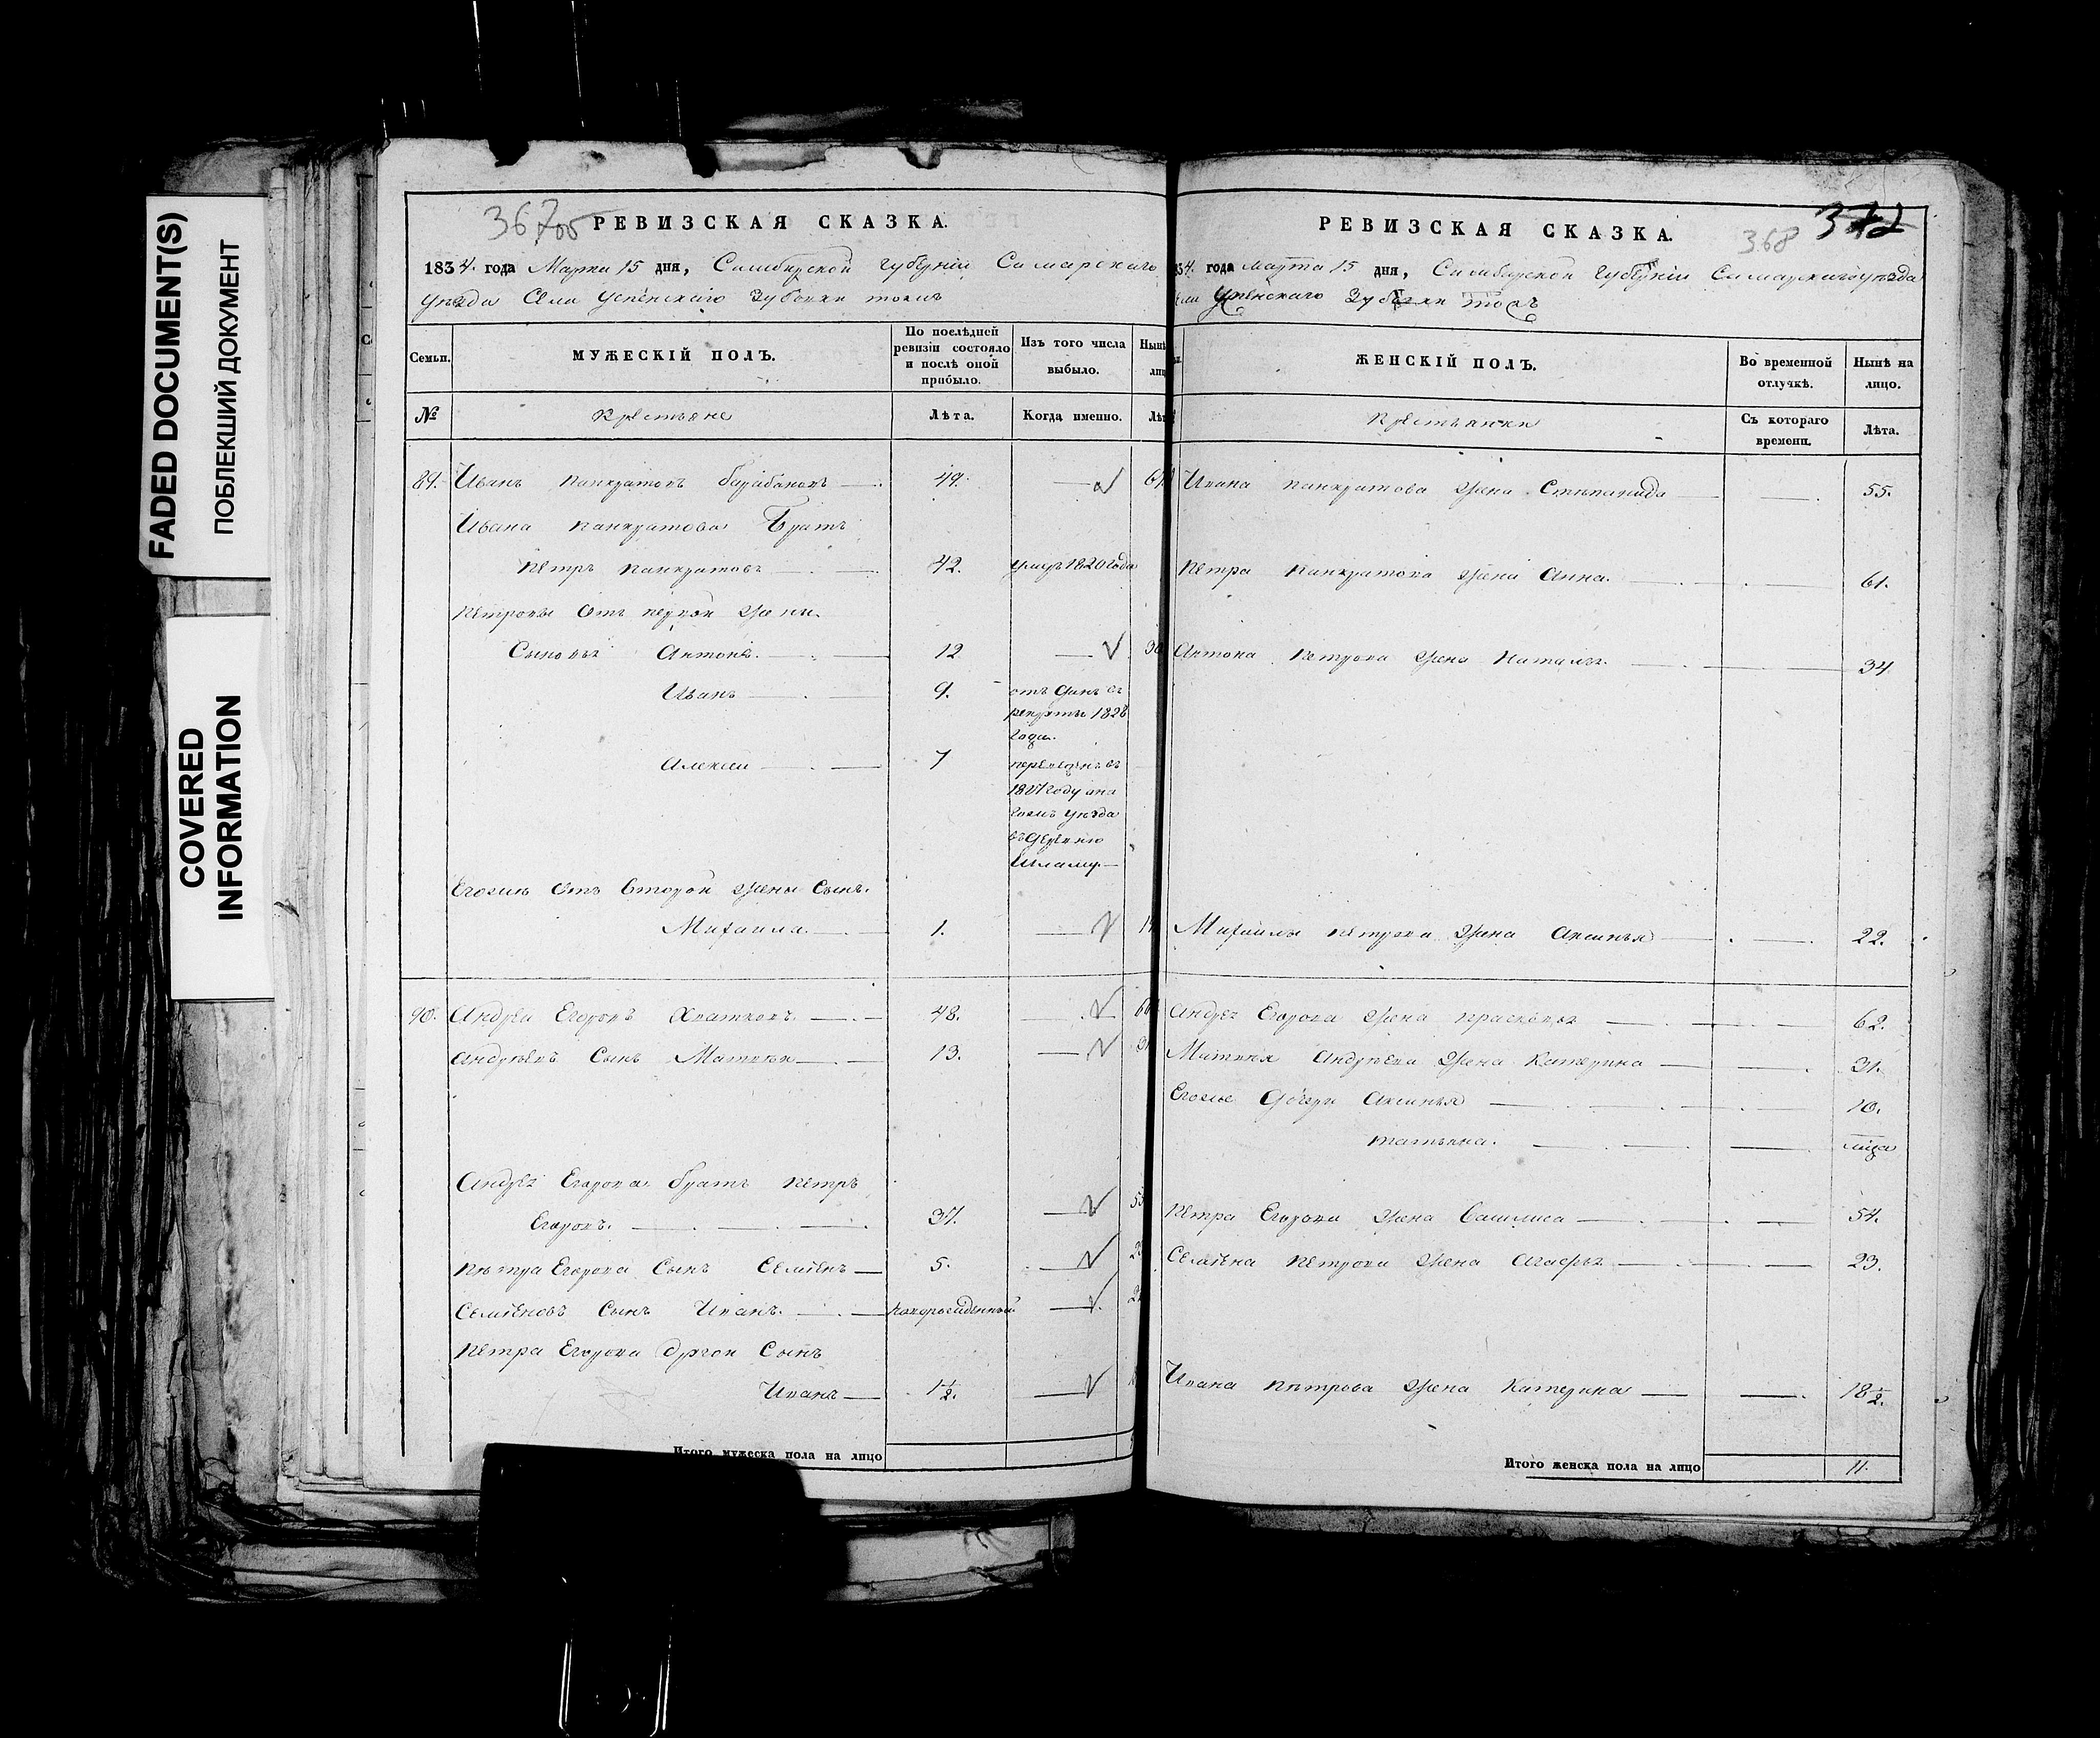 FADED DOCUMENT(S)
ПОБЛЕКШИЙ ДОКУМЕНТ
COVERED
INFORMATION
367
РЕВИЗСКАЯ СКАЗКА.
1834. года Марта 15 дня, Симбирской Губернiи Самарскаго
Уѣзда Села Успенскаго Зубовки тожъ
Семьи.
МУЖЕСКIЙ ПОЛЪ.
По послѣдней
ревизiи состояло
и послѣ оной
прибыло.
Изъ того числа
выбыло.
Нынѣ
лиц
№
Крестьяне
Лѣта.
Когда именно.
Лѣт
89. Иванъ Панкратовъ Барабановъ 49.
Ивана Панкратова Братъ
Петръ Панкратовъ 42. умеръ 1820 года
Петровы Отъ первой Жены.
Сыновья Антонъ. 12
Иванъ 9. отданъ въ
рекруты 1828
года.
Алексеи 7 переведенъ въ
году
гоже уѣзда
въ Деревню
Егожъ Отъ Второй Жены Сынъ.
Михаила 1.
90. Андреи Егоровъ 48.
Андреевъ Сынъ Матвеи 13.
Андрея Егорова братъ Петръ
Егоровъ. 37.
Петра Егорова Сынъ Семенъ 5.
Семеновъ Сынъ Иванъ. новорожденный
Петра Егорова другой Сынъ
Иванъ 1 1/2.
Итого мужеска пола на лицо
368
372
РЕВИЗСКАЯ СКАЗКА.
34. года Марта 15 дня, Симбирской Губернiи Самарскаго уѣзда
Успенскаго Зубовки тожъ
ЖЕНСКIЙ ПОЛЪ.
Во временной
отлучкѣ.
Нынѣ на
лицо.
Крестьянки
Съ котораго
времени.
Лѣта.
Ивана Панкратова Жена Степанида 55.
Петра Панкратова Жена Анна. 61.
Антона Петрова Жена Наталья. 34
Михайлы Петрова Жена Аксинья 22.
Андрея Егорова Жена Прасковья 62.
Матвея Андреева Жена Катерина 31.
Егоже Дочери Аксинья 10.
Татьяна.
Петра Егорова Жена Василиса 54.
Семена Петрова Жена Агафья 23.
Ивана Петрова Жена Катерина 18 1/2.
Итого женска пола на лицо 11.